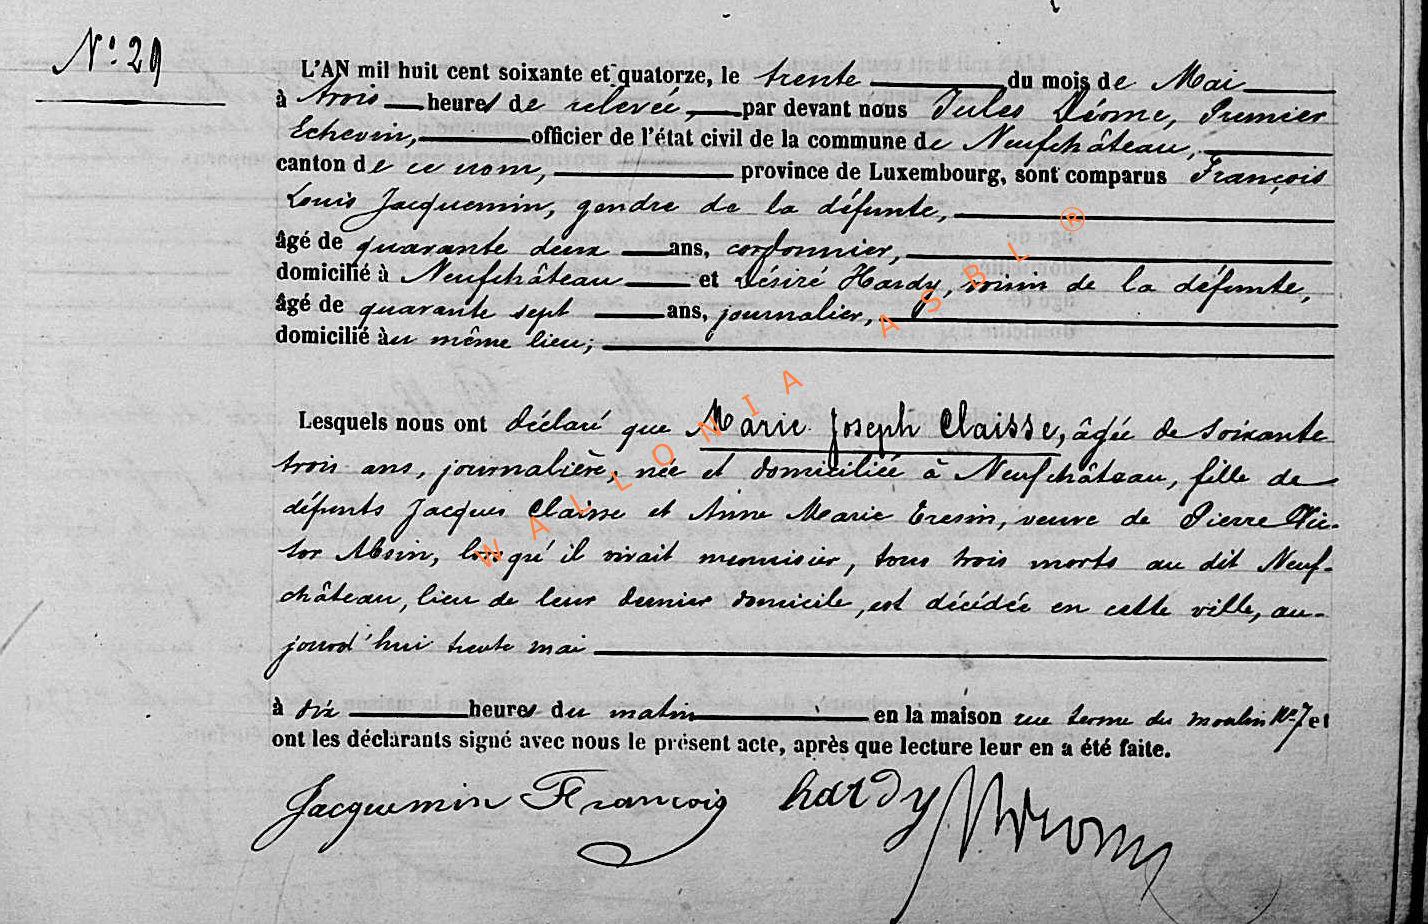 Nº 29
L'AN mil huit cent soixante et quatorze, le trente du mois de Mai
à trois heures de relevée, par devant nous Jules Déome, Premier
Echevin, officier de l'état civil de la commune de Neufchâteau,
canton de ce nom, province de Luxembourg, sont comparus François
Louis Jacquemin, gendre de la défunte,
âgé de quarante deux ans, cordonnier,
domicilié à Neufchâteau et Désiré Hardy, voisin de la défunte,
âgé de quarante sept ans, journalier,
domicilié au même lieu;
Lesquels nous ont déclaré que Marie Joseph Claisse, âgée de soixante
trois ans, journalière, née et domiciliée à Neufchâteau, fille de
défunts Jacques Claisse et Anne Marie Eresin, veuve de Pierre Vic-
tor Absin, lorsqu'il vivait menuisier, tous trois morts au dit Neuf-
château, lieu de leur dernier domicile, est décédée en cette ville, au-
jourd'hui trente mai
à dix heures du matin en la maison rue terme du moulin Nº 7 et
ont les déclarants signé avec nous le présent acte, après que lecture leur en a été faite.
Jacquemin François hardy
WALLONIA ASBL ®